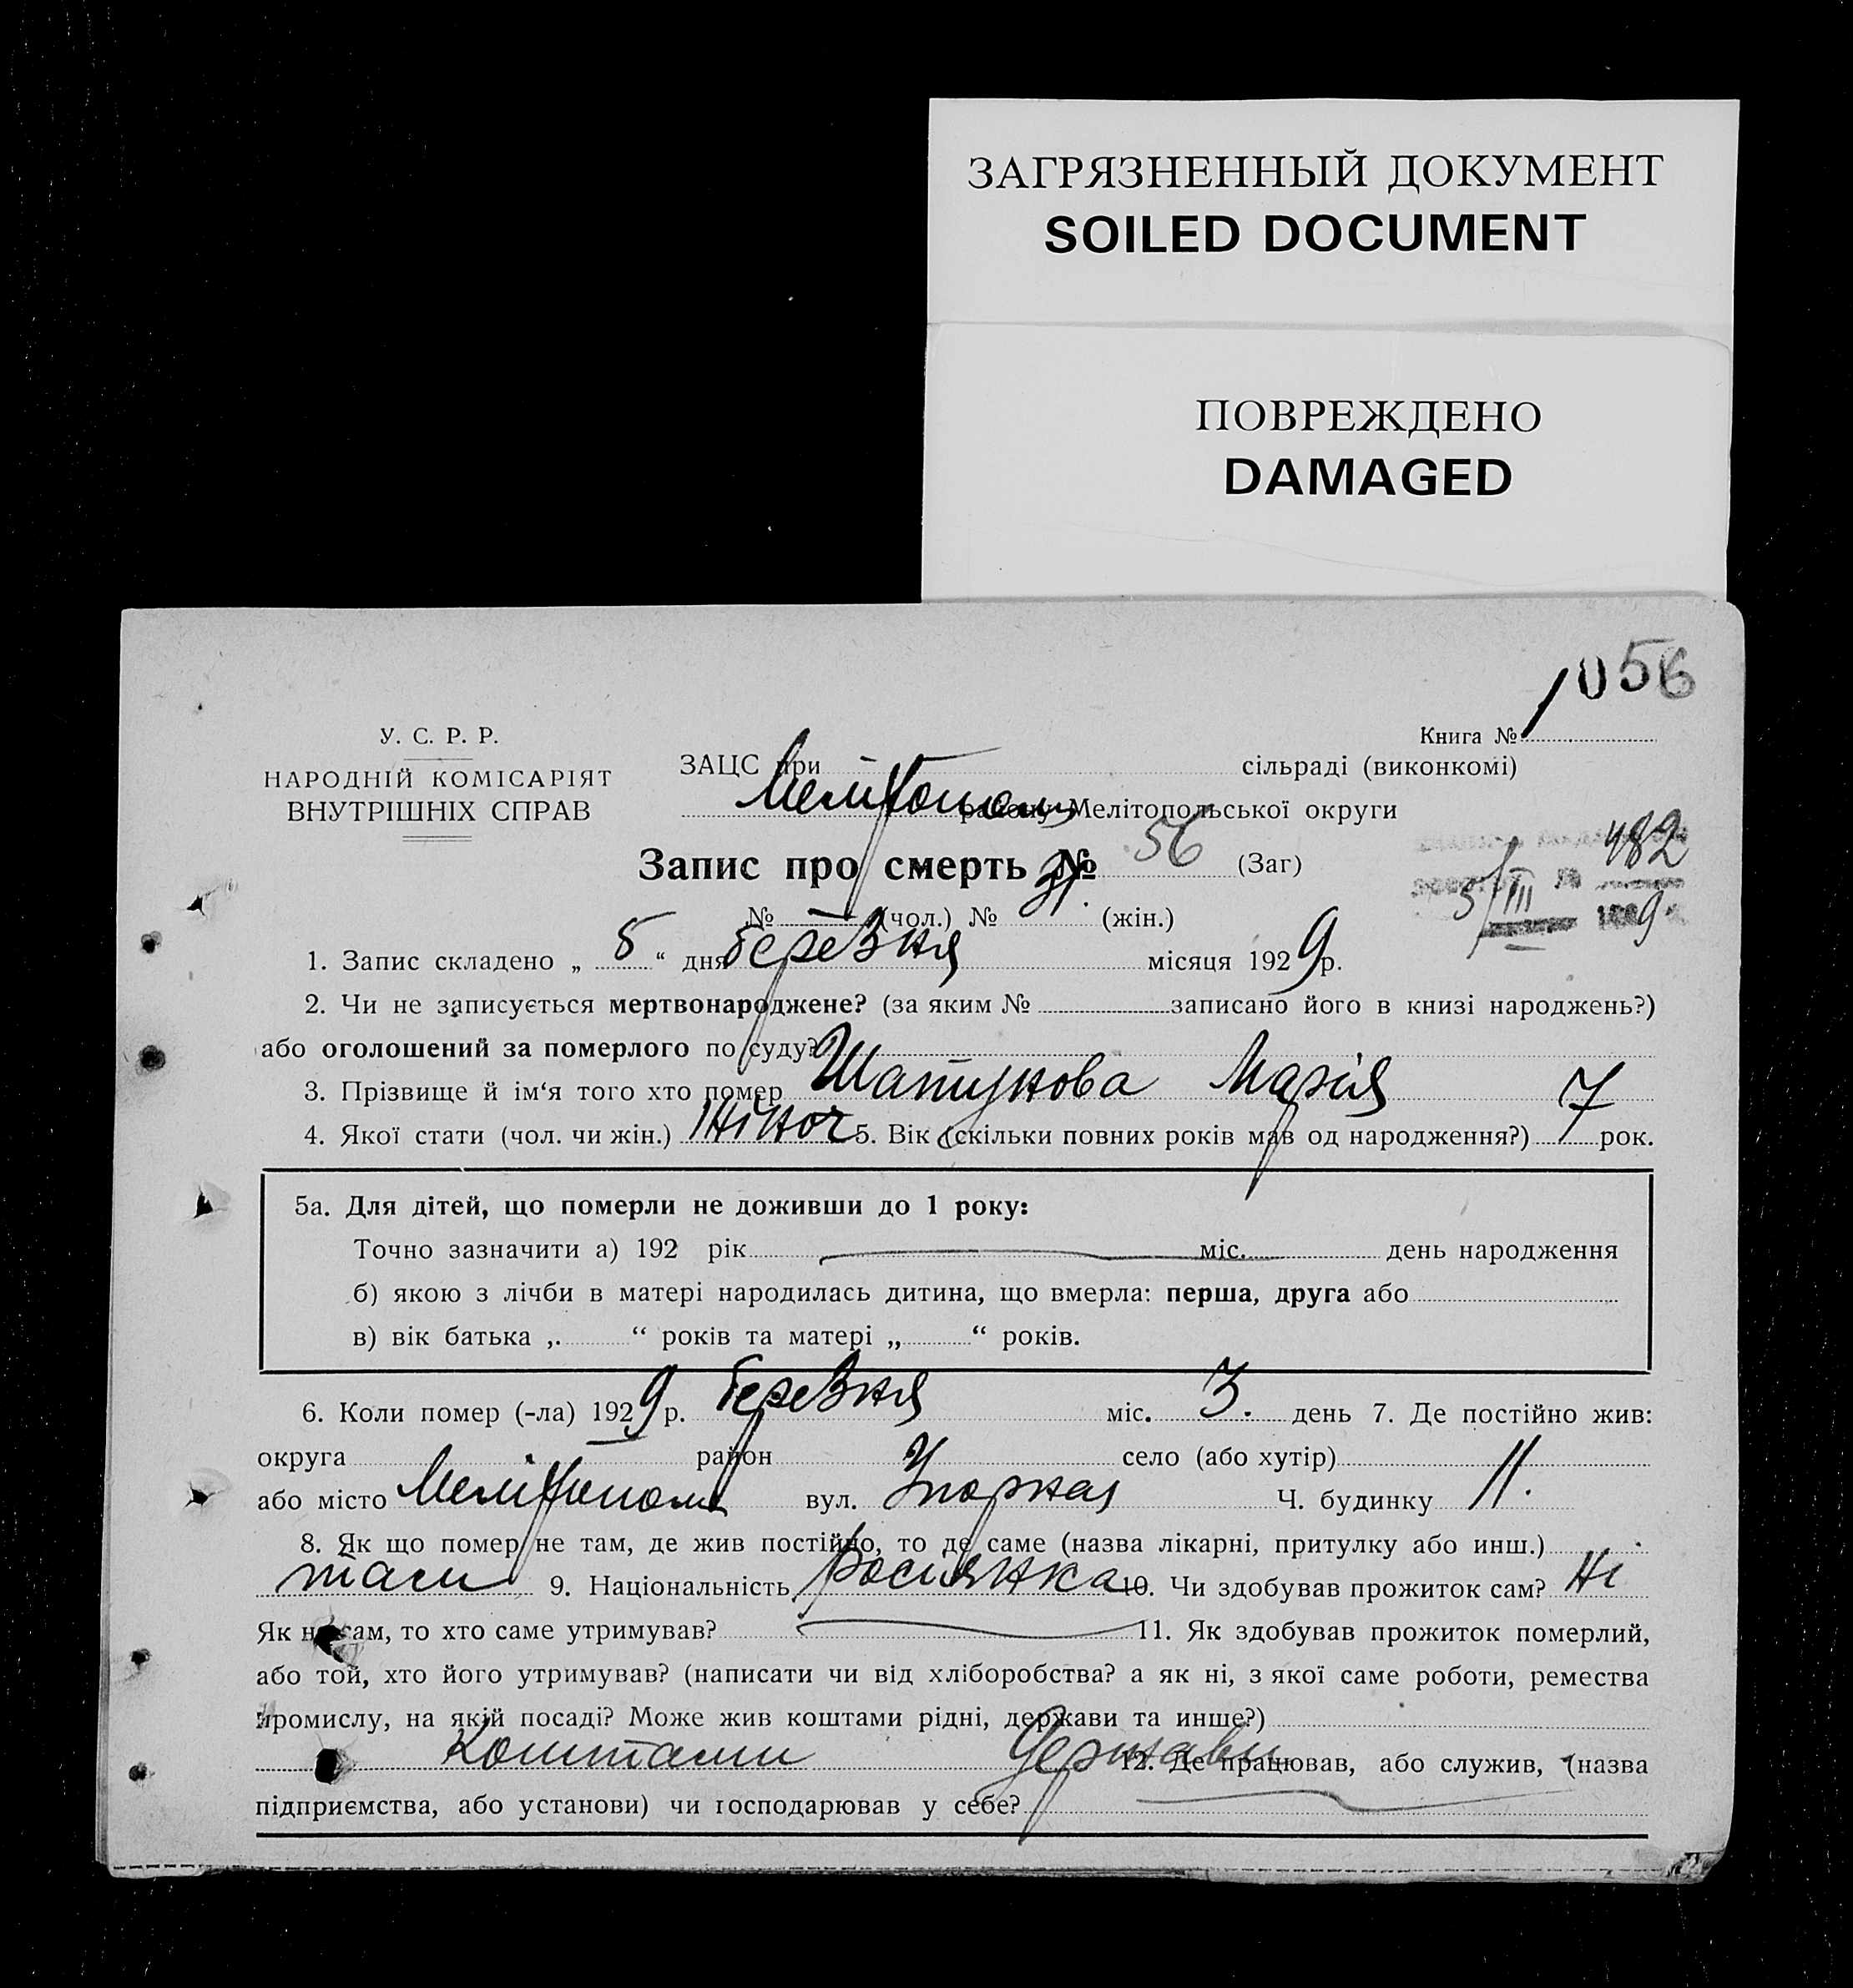 ЗАГРЯЗНЕННЫЙ ДОКУМЕНТ
SOILED DOCUMENT
ПОВРЕЖДЕНО
DAMAGED
056
У. С. Р. Р.
НАРОДНІЙ КОМІСАРІЯТ
ВНУТРІШНІХ СПРАВ
Книга № 1
ЗАЦС при сільраді (виконкомі)
району Мелітопольської округи
482
Запис про смерть № 56 (Заг)
5/III 9
№ — (чол.) № 31. (жін.)
1. Запис складено „ 5 “ дня березня місяця 1929 р.
2. Чи не записується мертвонароджене? (за яким № записано його в книзі народжень?)
або оголошений за померлого по суду?
3. Прізвище й ім‘я того хто помер Шатунова Марія
4. Якої стати (чол. чи жін.) жіноч 5. Вік (скільки повних років мав од народження?) 7 рок.
5а. Для дітей, що померли не доживши до 1 року:
Точно зазначити а) 192 рік міс. день народження
б) якою з лічби в матері народилась дитина, що вмерла: перша, друга або
в) вік батька „ “ років та матері „ “ років.
6. Коли помер (-ла) 1929 р. березня міс. 3. день 7. Де постійно жив:
округа район село (або хутір)
або місто Мелітополь вул. Ч. будинку 11.
8. Як що помер не там, де жив постійно, то де саме (назва лікарні, притулку або инш.)
там 9. Національність росіянка 10. Чи здобував прожиток сам? Ні
Як не сам, то хто саме утримував? 11. Як здобував прожиток померлий,
або той, хто його утримував? (написати чи від хліборобства? а як ні, з якої саме роботи, ремества
промислу, на якій посаді? Може жив коштами рідні, держави та инше?)
Коштами Держави 12. Де працював, або служив, (назва
підприємства, або установи) чи господарював у себе?